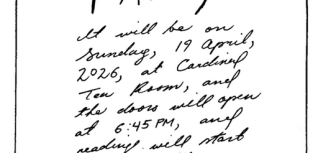 It will be on
Sunday, 19 April,
2026, at Cardinel
Tea Room, and
the doors will open
at 6:45 PM, and
reading will start